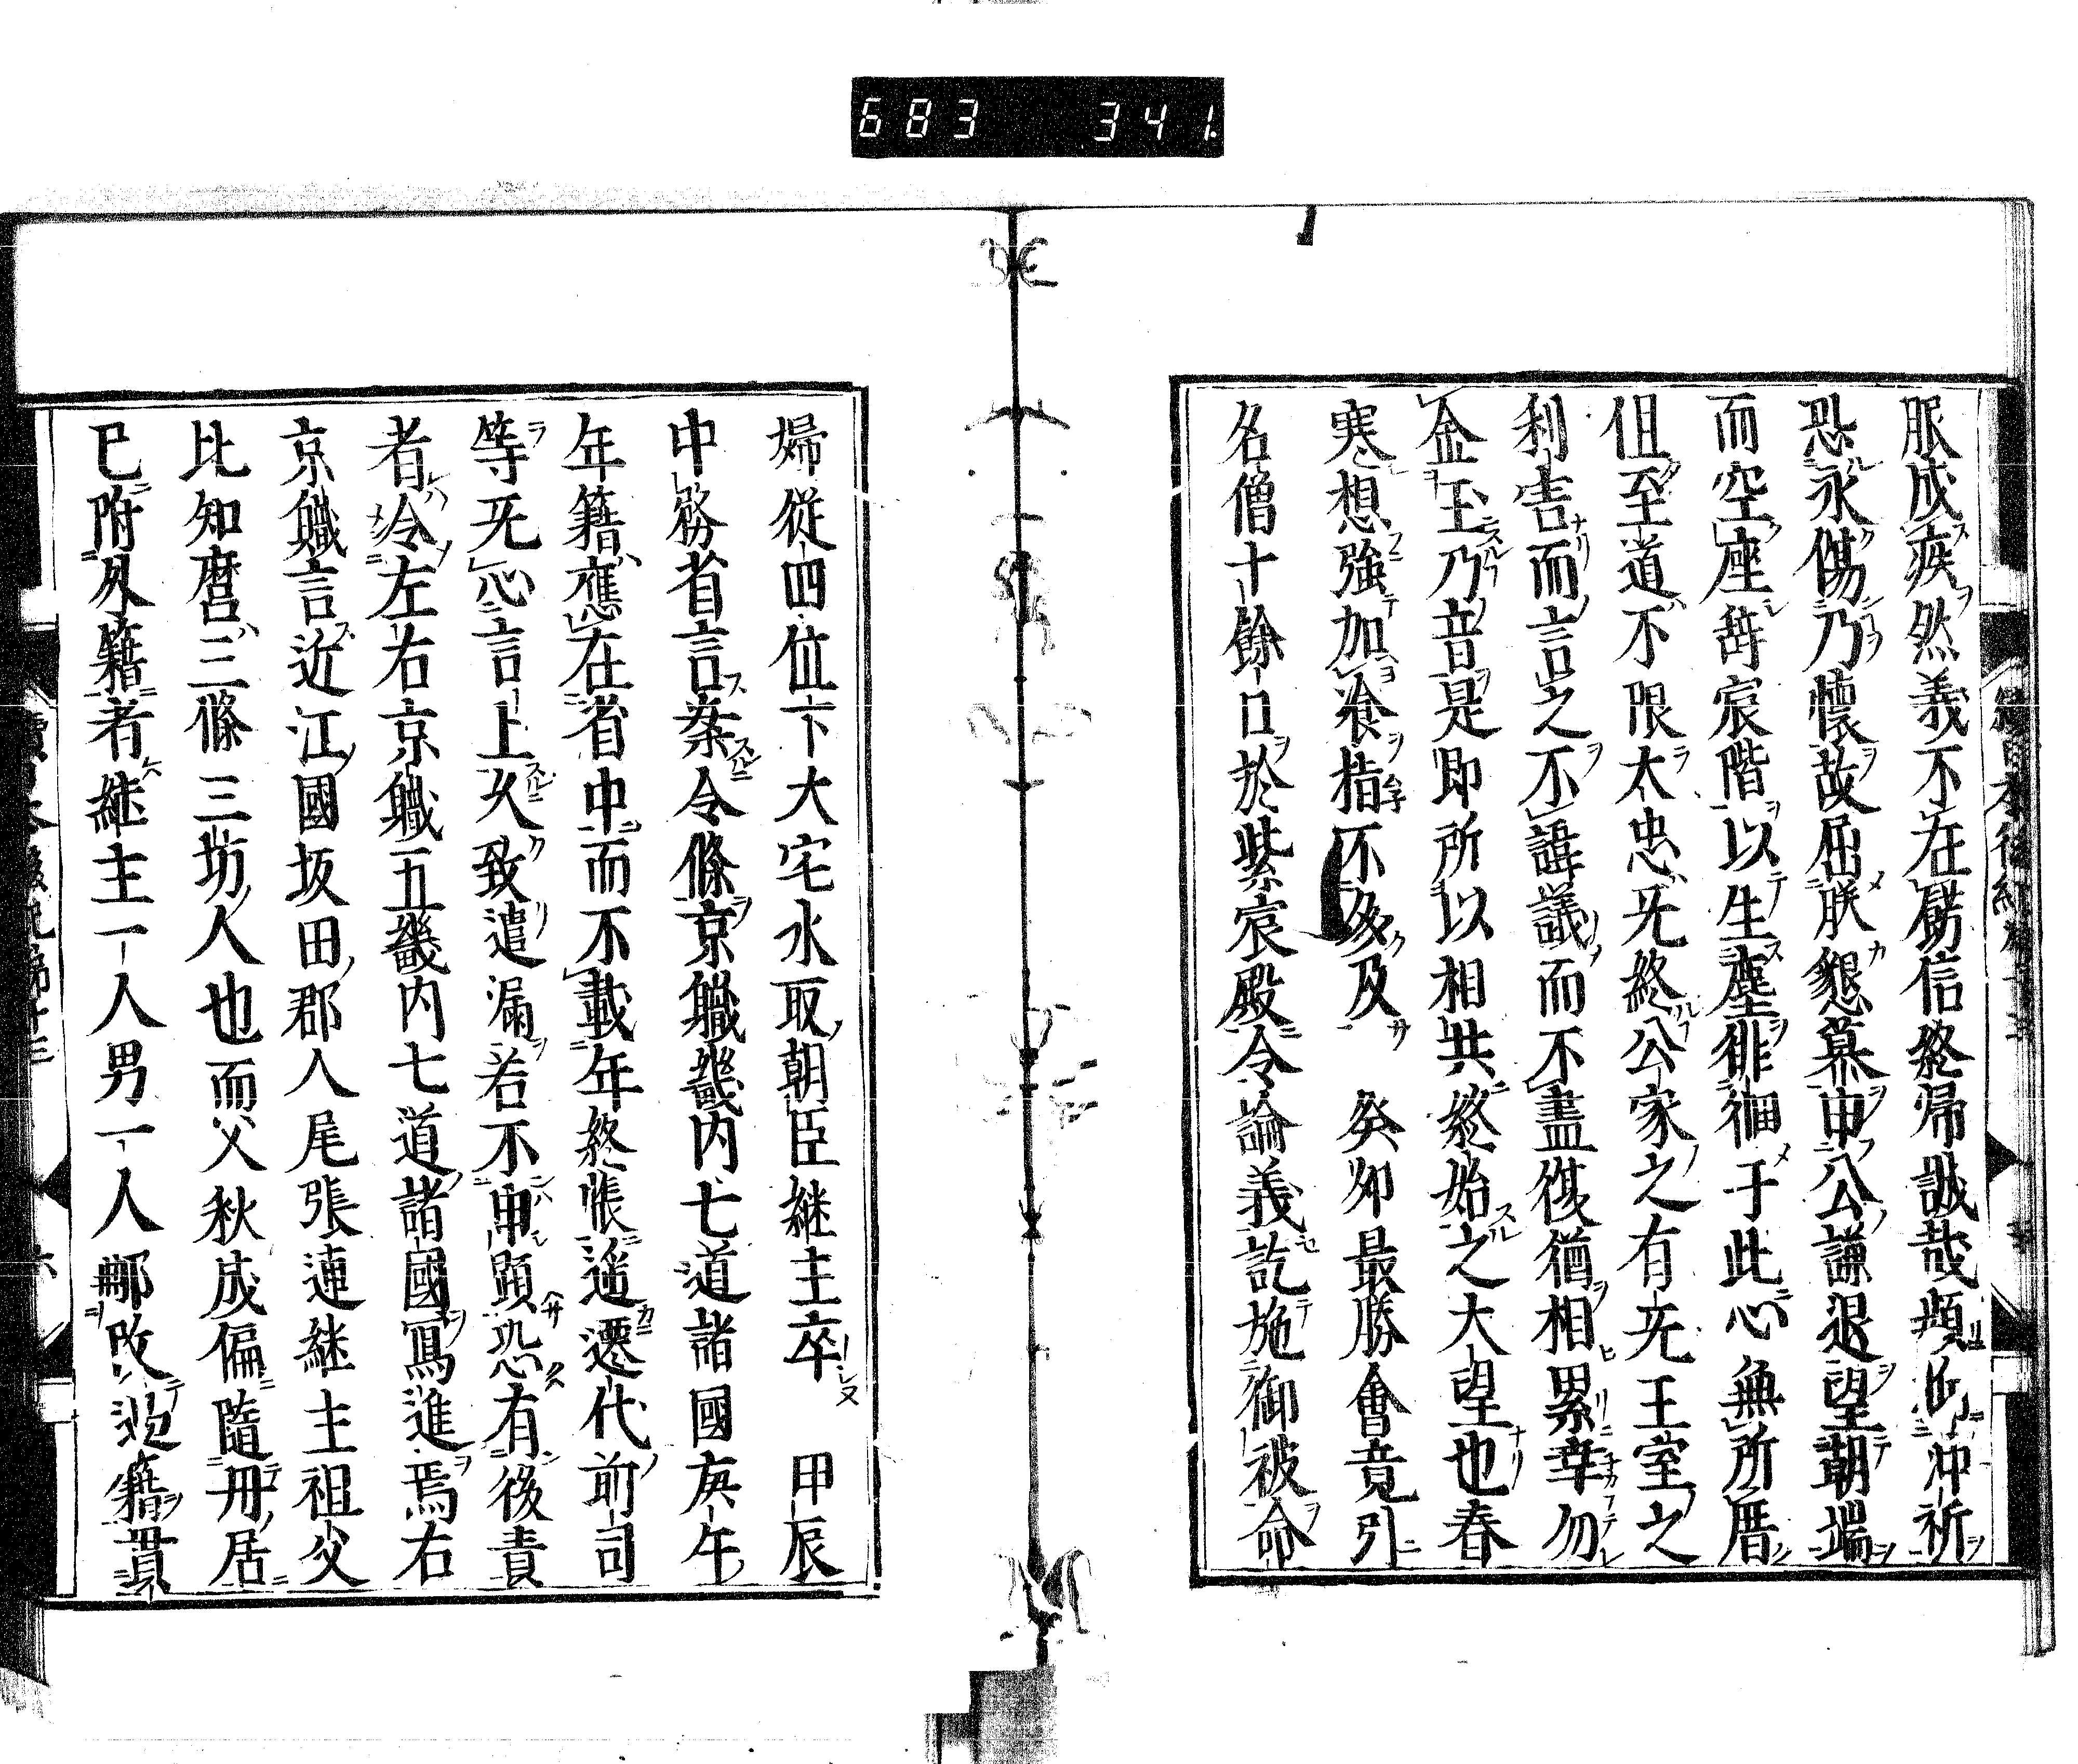 683 341
服成疾然義不在劈信終帰誠哉頻 冲祈
恐永傷乃懐故屈朕懇慕申公謙退望朝端
而空座辞宸階以生塵徘徊于此心無所厝
但至道不限太忠无終公家之有无王室之
利害而言之不諱議而不盡復猶相累幸勿
金玉乃音是即所以相共終始之大望也春
寒想強加飡指不多及 癸卯最勝會竟引
名僧十餘口於紫宸殿令論義訖施御被命
婦從四位下大宅水取朝臣継主卒 甲辰
中務省言案令條京職畿内七道諸國庚午
年籍應在省中而不載年終帳遥遷代前司
等无心言上久致遺漏若不申顕恐有後責
者令左右京職五畿内七道諸國冩進焉右
京職言近江國坂田郡人尾張連継主祖父
比知麿三條三坊人也而父秋成偏隨母居
已附外籍者継主一人男一人 改 籍貫